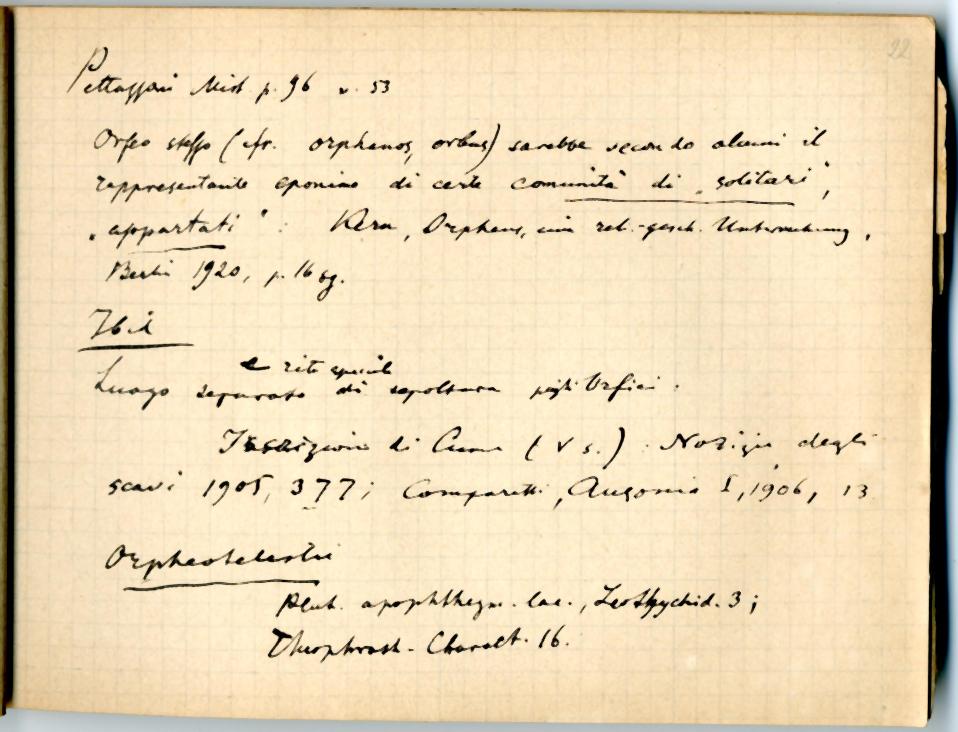 22
Pettazzoni Mist p. 96 n. 53
Orfeo stesso (cfr. orphanos, orbus) sarebbe secondo alcuni il
rappresentante eponimo di certe comunità di „solitari",
„appartati" : Kern, Orpheus, eine rel.-gesch. Untersuchung,
Berlin 1920, p. 16 sg.
Ibid
e riti speciali
Luogo separato di sepoltura per gli Orfici.
Iscrizione di Cuma (V s.). Notizie degli
scavi 1905, 377; Comparetti, Ausonia I, 1906, 13
Orpheotelestai
Plut. apophthegm. lac., Leotychid. 3;
Theophrast. Charakt. 16.